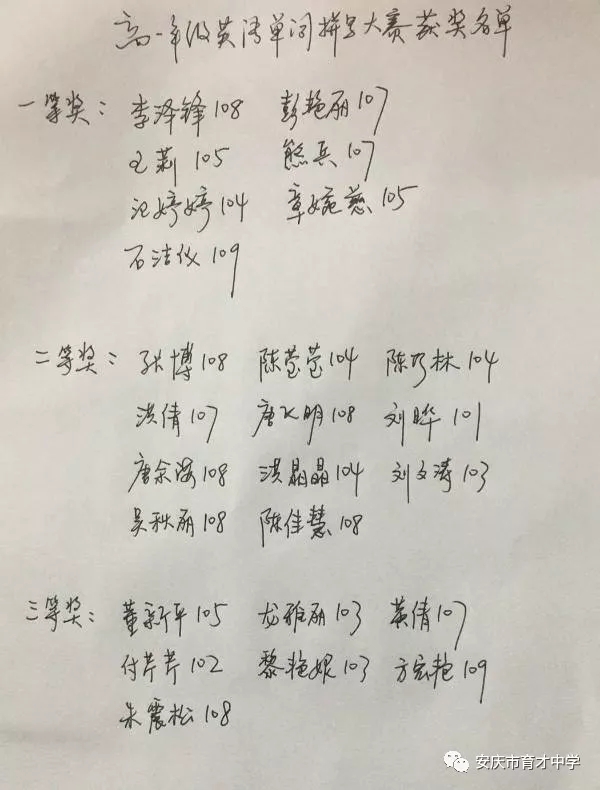 高一年级英语单词拼写大赛获奖名单
一等奖: 李泽锋108 彭艳丽107
王莉105 熊兵107
江婷婷104 章婉慈105
石洁仪109
二等奖: 张博108 陈莹莹104 陈乃林104
洪倩107 唐飞明108 刘晔101
唐余海108 洪晶晶104 刘文涛103
吴秋丽108 陈佳慧108
三等奖: 董新平105 龙雅丽103 黄倩107
付芹芹102 黎艳娘103 方宏艳109
朱震松108
安庆市育才中学